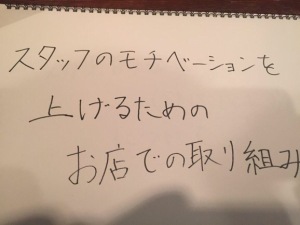 スタッフのモチベーションを
上げるための
お店での取り組み